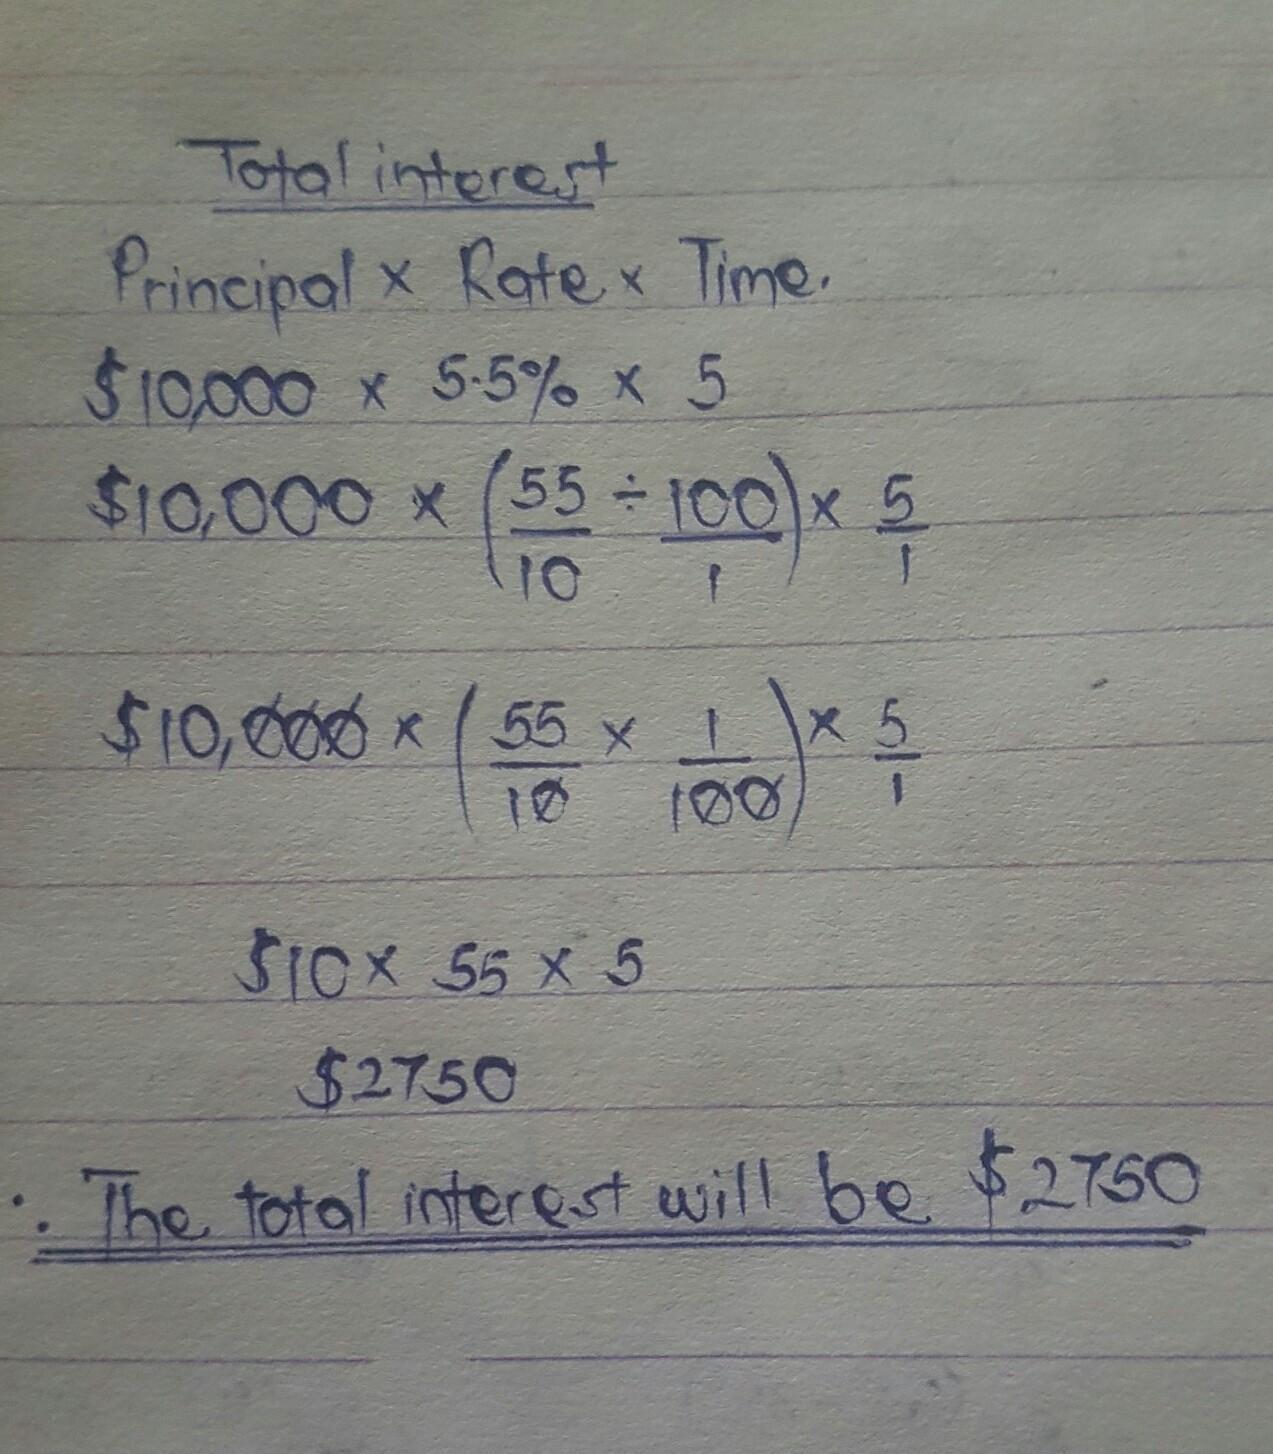 Total interest
Principal × Rate × Time.
$10,000 × 5.5% × 5
$10,000 × (55/10 ÷ 100/1) × 5/1
$10,000 × (55/10 × 1/100) × 5/1
$10 × 55 × 5
$2750
∴ The total interest will be $2750